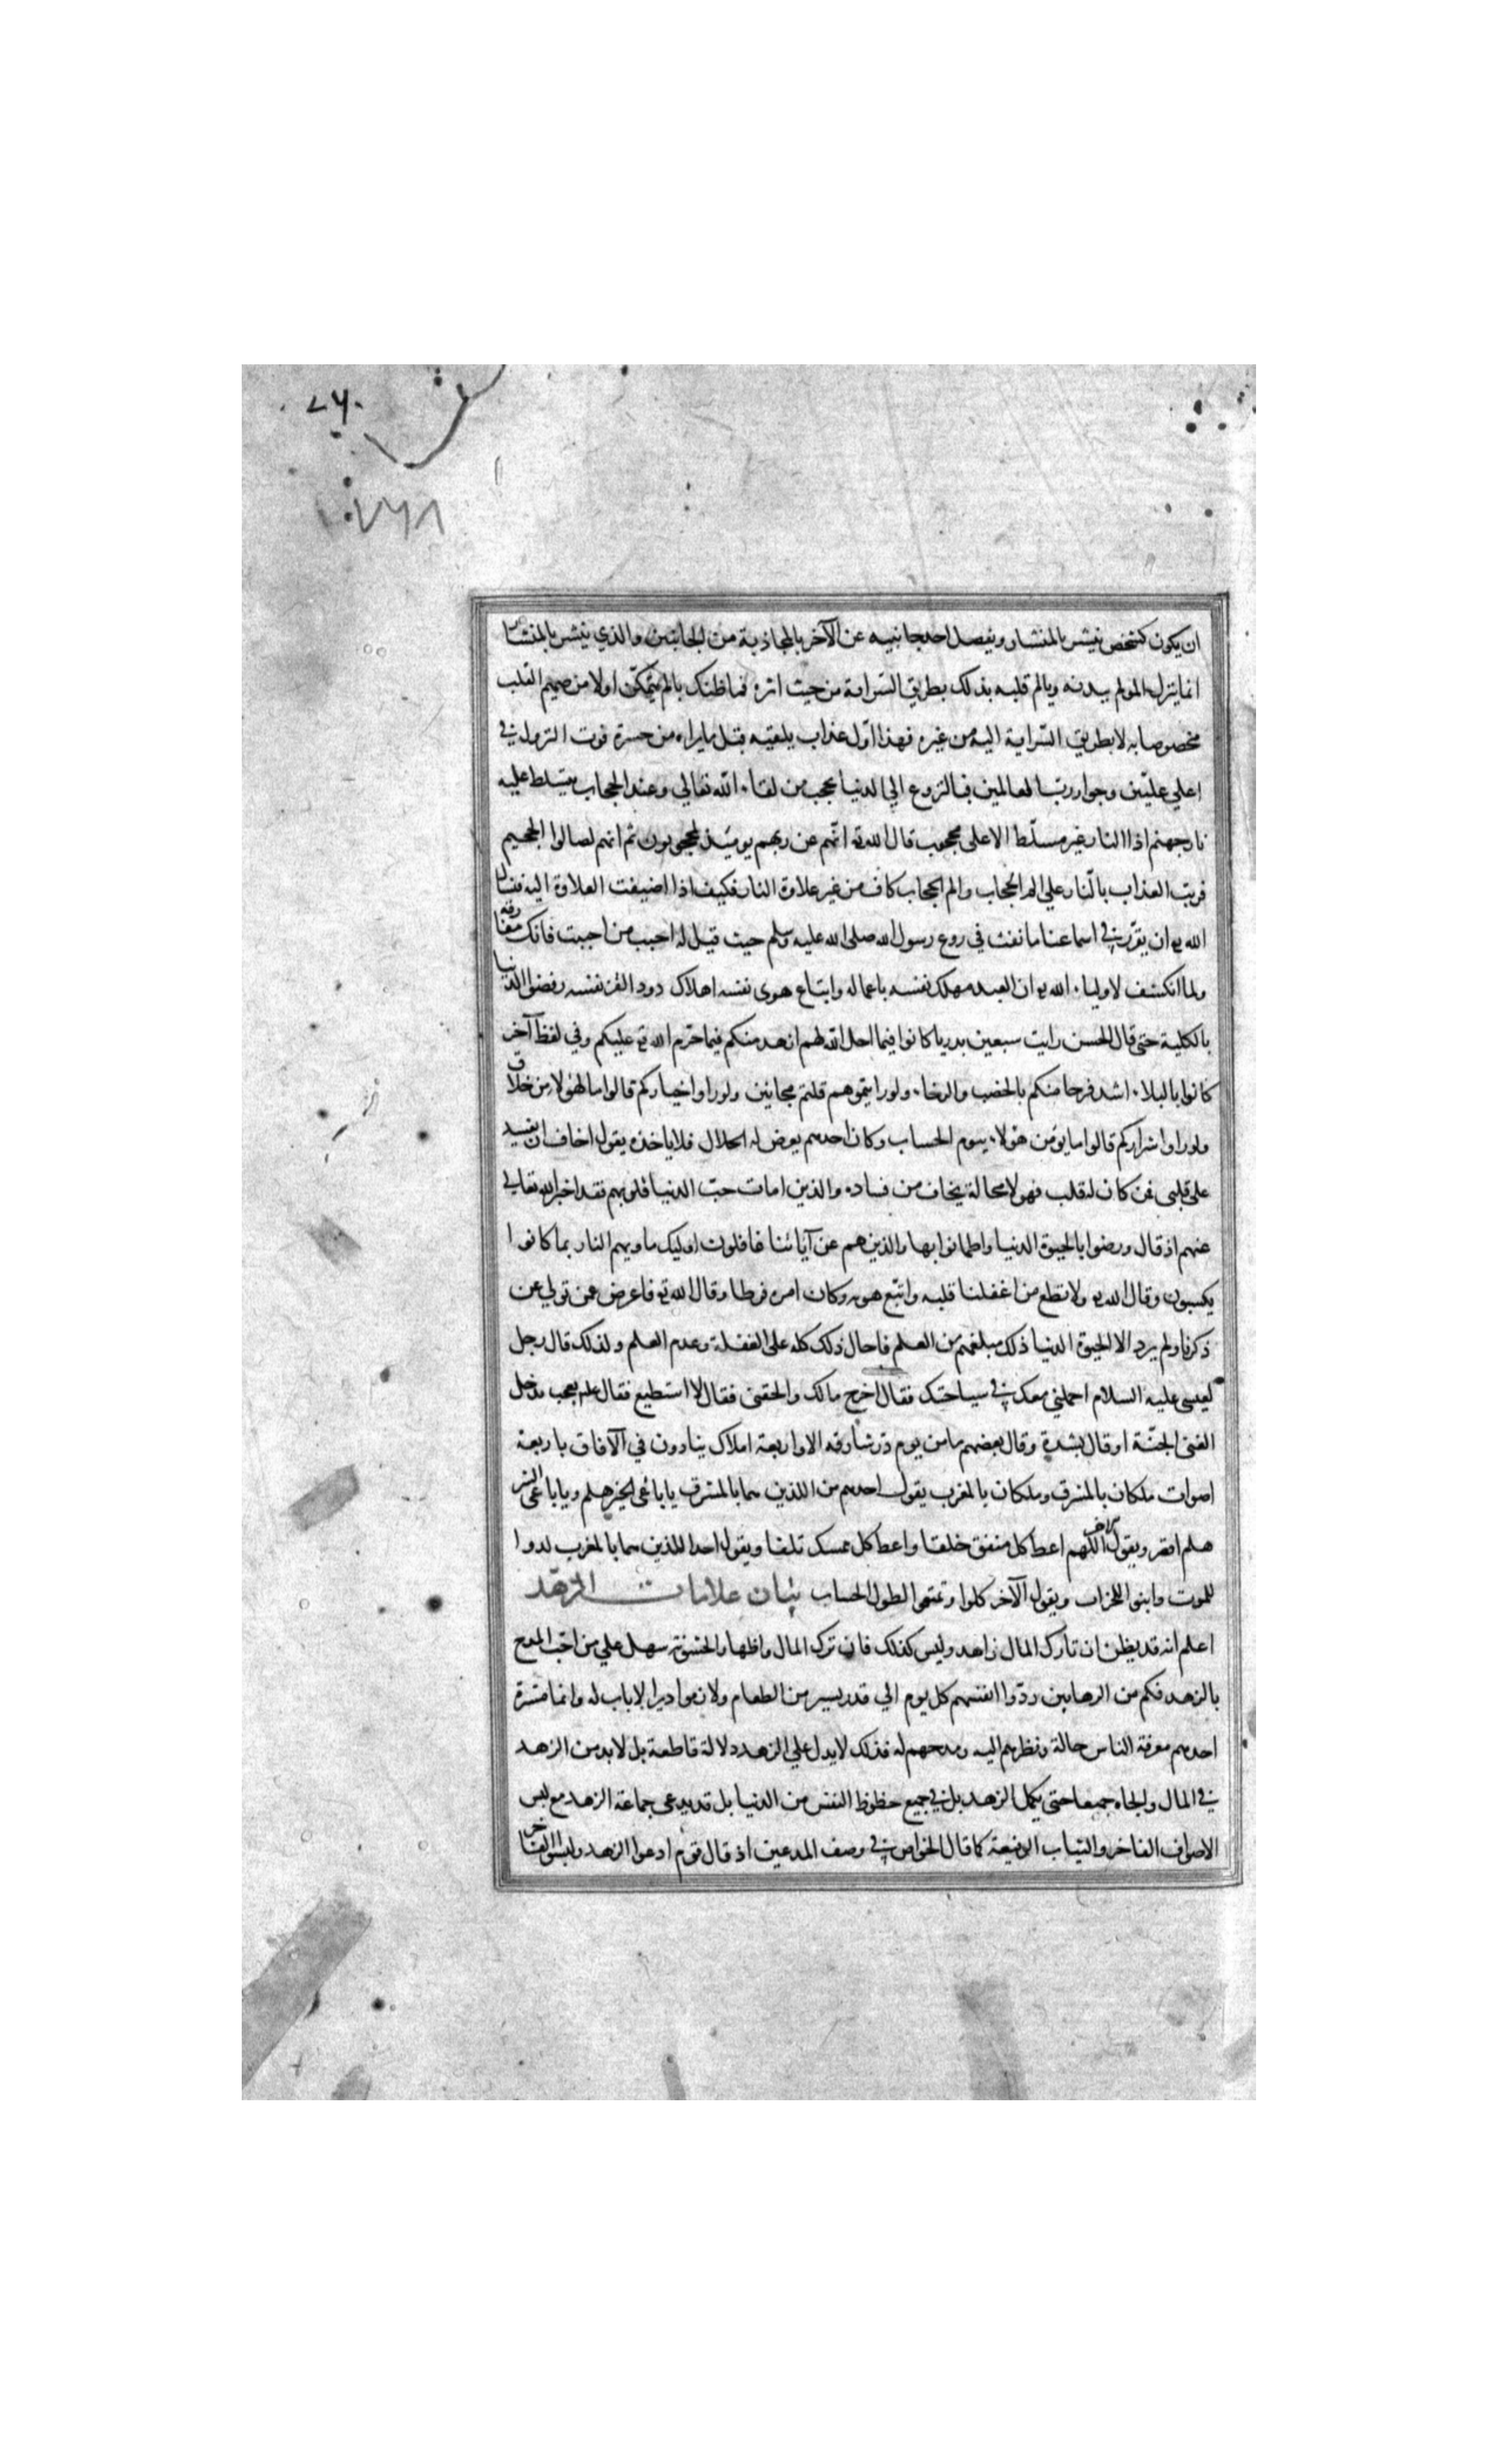 ۷۶۰
۷۶۸
ان يكون كشخص ينشر بالمنشار ويفصل احد جانبيه عن الآخر بالمجاذبة من الجانبين والذي ينشر بالمنشار
انما ينزل المولم ببدنه ويالم قلبه بذلك بطريق السراية من حيث اثره فما ظنك بالم يتمكن اولا من صميم القلب
مخصوصا به لا بطريق السراية اليه من غيره فهذا اول عذاب يلقيه قبل ما يراه من حسرة فوت النزول في
اعلي عليين وجوار رب العالمين فبالنزوع الي الدنيا يحجب من لقاء الله تعالي وعند الحجاب يتسلط عليه
نار جهنم اذ النار غير مسلط الا على محجوب قال الله تع انهم عن ربهم يومئذ لمحجوبون ثم انهم لصالوا الجحيم
فرتب العذاب بالنار علي الم الحجاب والم الحجاب كاف من غير علاوة النار فكيف اذا اضيفت العلاوة اليه فنسال
الله تع ان يقرر في اسماعنا ما نفث في روع رسول الله صلى الله عليه وسلم حيث قيل له احبب من احببت فانك مفارقه
ولما انكشف لاولياء الله تع ان العبد مهلك نفسه باعماله واتباع هوى نفسه اهلاك دود القز نفسه رفضوا الدنيا
بالكلية حتى قال الحسن رايت سبعين بدريا كانوا فيما احل الله لهم ازهد منكم فيما حرم الله تع عليكم وفي لفظ آخر
كانوا بالبلاء اشد فرحا منكم بالخصب والرخاء ولو رايتموهم قلتم مجانين ولو راوا خياركم قالوا ما لهؤلاء من خلاق
ولو راوا شراركم قالوا ما يؤمن هؤلاء بيوم الحساب وكان احدهم يعرض له الحلال فلا ياخذه يقول اخاف ان يفسد
على قلبي فمن كان له قلب فهو لا محالة يخاف من فساده والذين امات حب الدنيا قلوبهم فقد اخبر الله تعالي
عنهم اذ قال ورضوا بالحيوة الدنيا واطمانوا بها والذين هم عن آياتنا غافلون اوليك ماويهم النار بما كانوا
يكسبون وقال الله تع ولا تطع من اغفلنا قلبه واتبع هويه وكان امره فرطا وقال الله تع فاعرض عن من تولي عن
ذكرنا ولم يرد الا الحيوة الدنيا ذلك مبلغهم من العلم فاحال ذلك كله على الغفلة وعدم العلم ولذلك قال رجل
لعيسى عليه السلام احملني معك في سياحتك فقال اخرج مالك والحقني فقال لا استطيع فقال عليه بعجب يدخل
الغني الجنة او قال بشدة وقال بعضهم ما من يوم ذر شارقه الا واربعة املاك ينادون في الآفاق باربعة
اصوات ملكان بالمشرق وملكان بالمغرب يقول احدهم من اللذين هما بالمشرق يا باغي الخير هلم ويا باغي الشر
هلم اقصر ويقول الآخر اللهم اعط كل منفق خلفا واعط كل ممسك تلفا ويقول احد اللذين هما بالمغرب لدوا
للموت وابنو اللخراب ويقول الآخر كلوا وتمتعوا لطول الحساب بيان علامات الزهد
اعلم انه قد يظن ان تارك المال زاهد وليس كذلك فان ترك المال واظهار الخشونة سهل علي من احب المدح
بالزهد فكم من الرهابين ردوا انفسهم كل يوم الي قدر يسير من الطعام ولازموا ديرا لا باب له وانما مسرة
احدهم معرفة الناس حاله ونظرهم اليه ومدحهم له فذلك لا يدل علي الزهد دلالة قاطعة بل لا بد من الزهد
في المال والجاه جميعا حتى يكمل الزهد بل في جميع حظوظ النفس من الدنيا بل قد يدعى جماعة الزهد مع لبس
الاصواف الفاخر والثياب الرفيعة كما قال الخواص في وصف المدعين اذ قال قوم ادعوا الزهد ولبسوا الفاخر